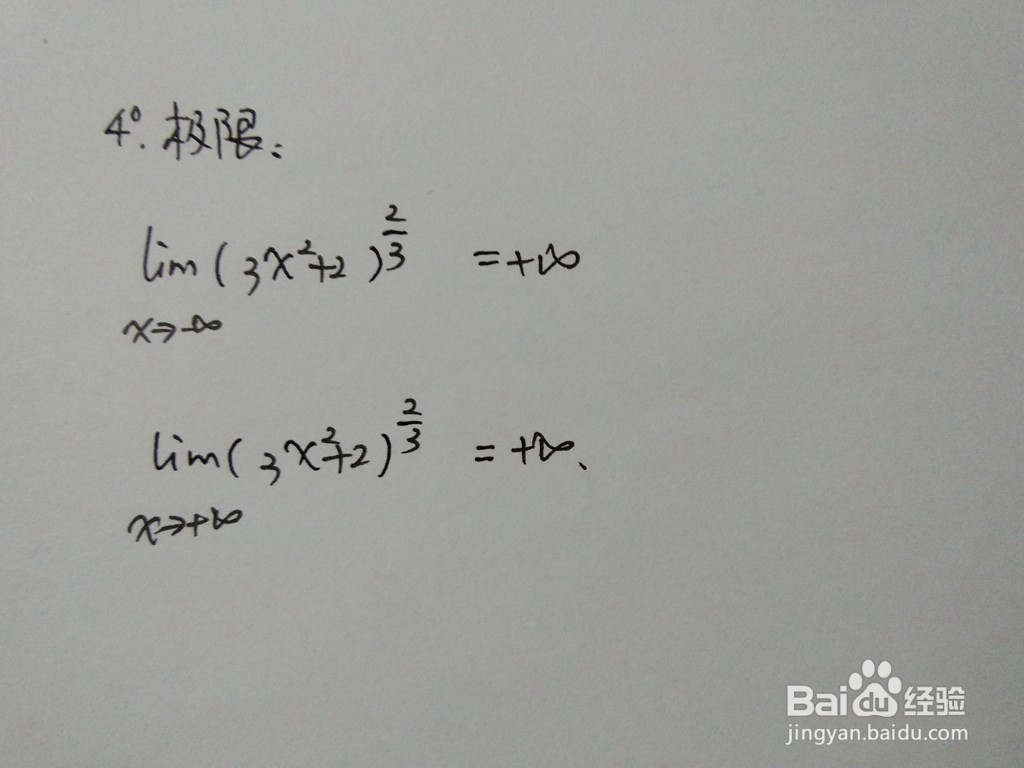 4°. 极限:
lim(3x²+2)^(2/3) = +∞
x→-∞
lim(3x²+2)^(2/3) = +∞、
x→+∞
Baidu 经验
jingyan.baidu.com